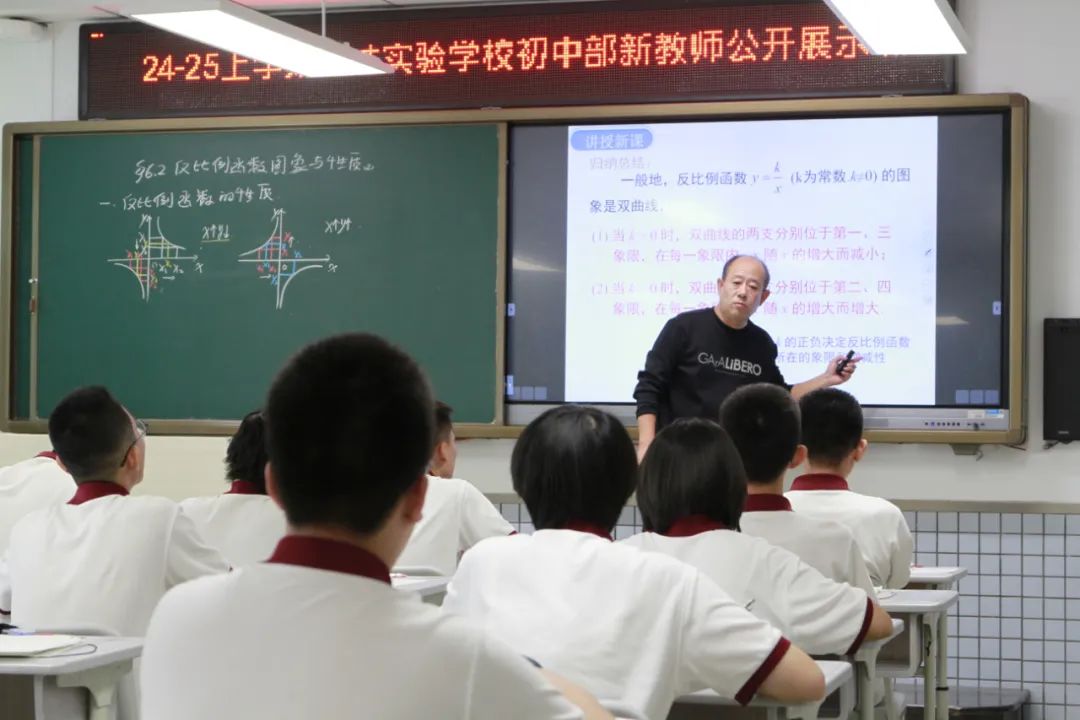 24-25上学 实验学校初中部新教师公开展示
§6.2 反比例函数图象与性质
一、反比例函数的性质
x↑y↓
x↑y↑
讲授新课
归纳总结：
一般地，反比例函数 y = k/x (k为常数,k≠0) 的图
象是双曲线.
(1) 当 k 0 时，双曲线的两支分别位于第一、三
象限，在每一象限内 随 x 的增大而减小；
(2) 当 k 0 时，双曲 分别位于第二、四
象限，在每一象 随 x 的增大而增大
k 的正负决定反比例函数
所在的象限 减性
GArALiBERO